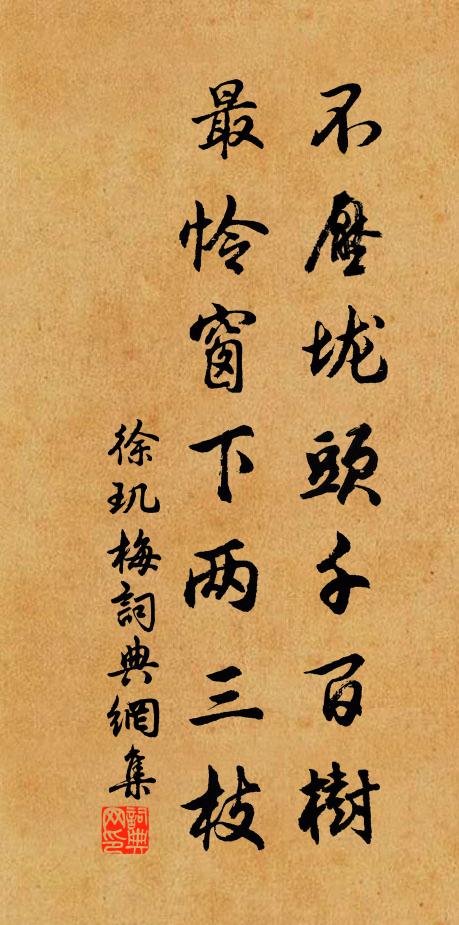 不厭垅頭千百樹
最怜窗下两三枝
徐玑梅詞典網集
詞典网印